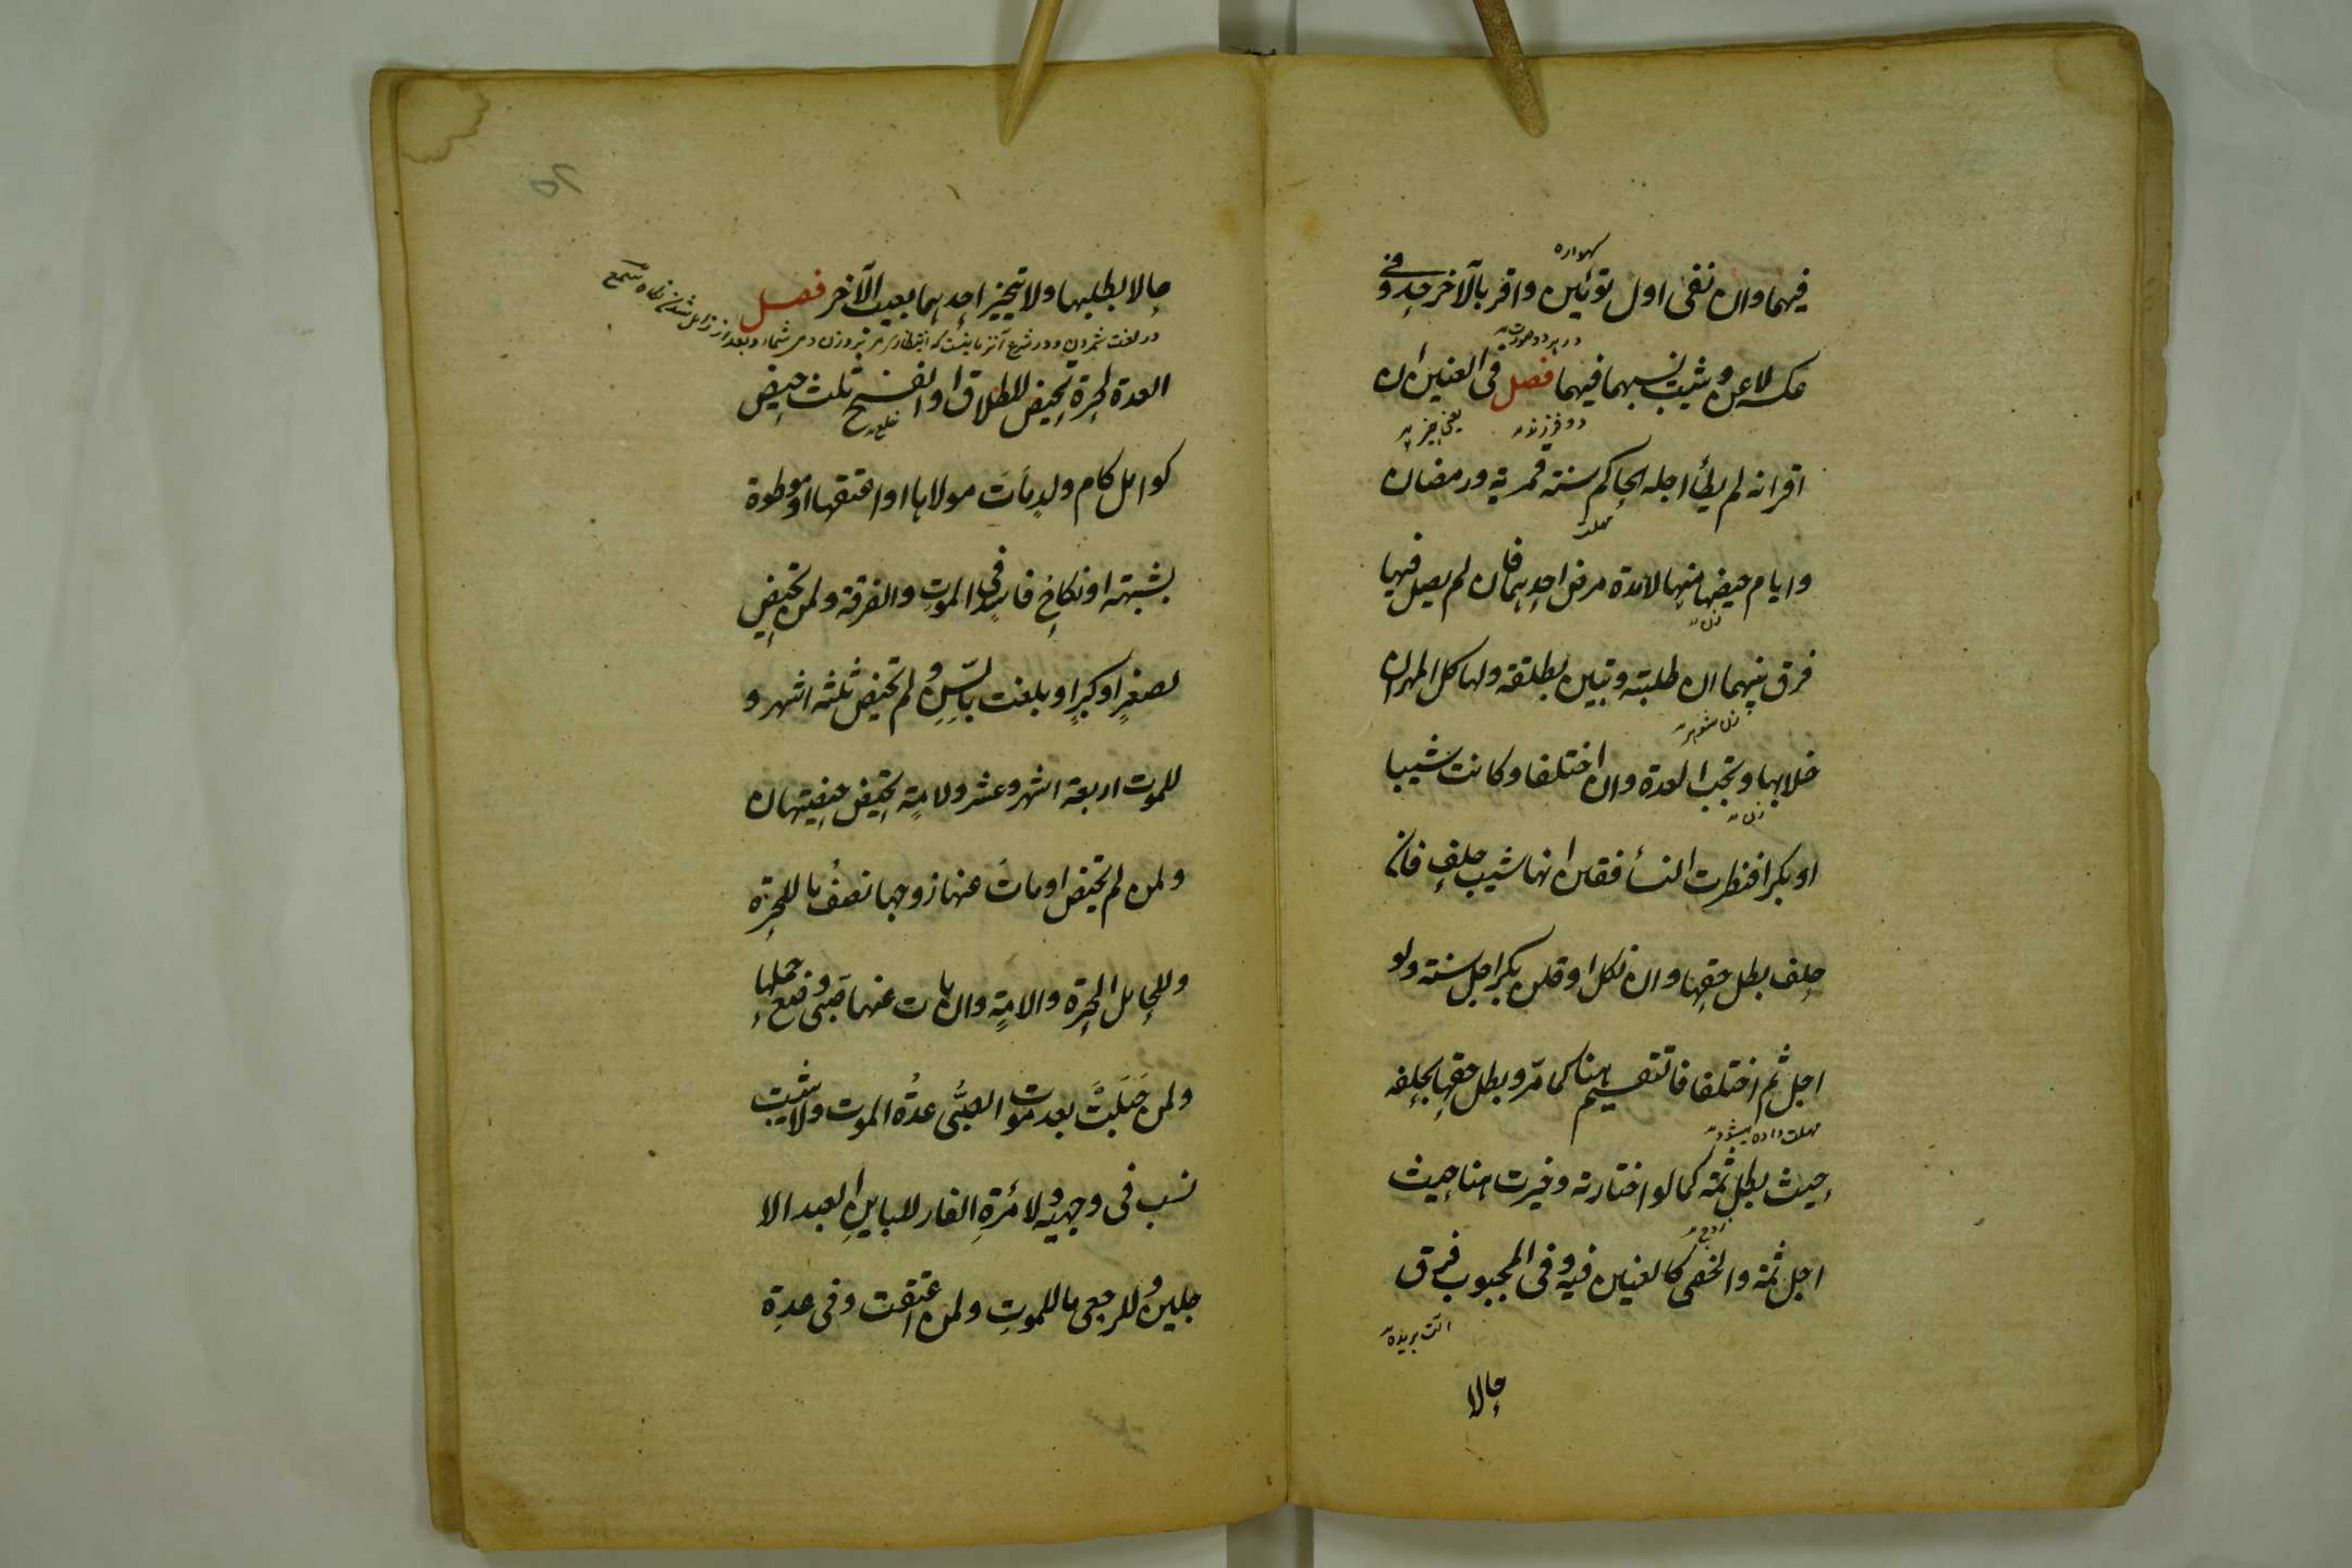 همواره
فيهما وان نفى اول توئمين واقر بالآخر حد وفى
در هر دو صورت
عكسه لاعن ويثبت نسبهما فيهما فصل فى العنين ان
دو فرزند يعنى
اقر انه لم يطأ اجله الحاكم سنة قمرية ورمضان
مهلت
وايام حيضها منها لا مدة مرض احدهما فان لم يصل فيها
زن
فرق بينهما ان طلبته وتبين بطلقة ولها كل المهر ان
زن شوهر
خلا بها وتجب العدة وان اختلفا وكانت ثيبا
زن
او بكرا فنظرت النسأ فقلن انها ثيب حلف فان
حلف بطل حقها وان نكل او قلن بكر اجل سنة ولو
اجل ثم اختلفا فالتقسيم هنا كما مر وبطل حقها بحلفه
مهلت داده ميشود
حيث بطل ثمه كما لو اختارته وخيرت هنا حيث
زوج
اجل ثمة والخصى كالعنين فيه وفى المجبوب فرق
الت بريده
حالا
حالا بطلبها ولا يتخير احدهما بعيب الآخر فصل
در لغت شمردن ودر شرع آنزمانيست كه انتظار
العدة لحرة تحيض للطلاق او الفسخ ثلث حيض
كوامل كام ولد مأت مولاها او اعتقها او موطوة
بشبهة او نكاح فاسد فى الموت والفرقة ولمن لا تحيض
لصغر او كبر او بلغت بالسن ولم تحيض ثلثه اشهر و
للموت اربعة اشهر وعشر ولامة تحيض حيضتان
ولمن لم تحيض او مات عنها زوجها نصف ما للحرة
وللحامل الحرة والامة وان مات عنها صبى وضع حملها
ولمن حبلت بعد موت الصبى عدة الموت ولا يثبت
نسب فى وجهيه ولامرئة الفار للباين ابعد الا
جلين وللرجعى ما للموت ولمن اعتقت وفى عدة